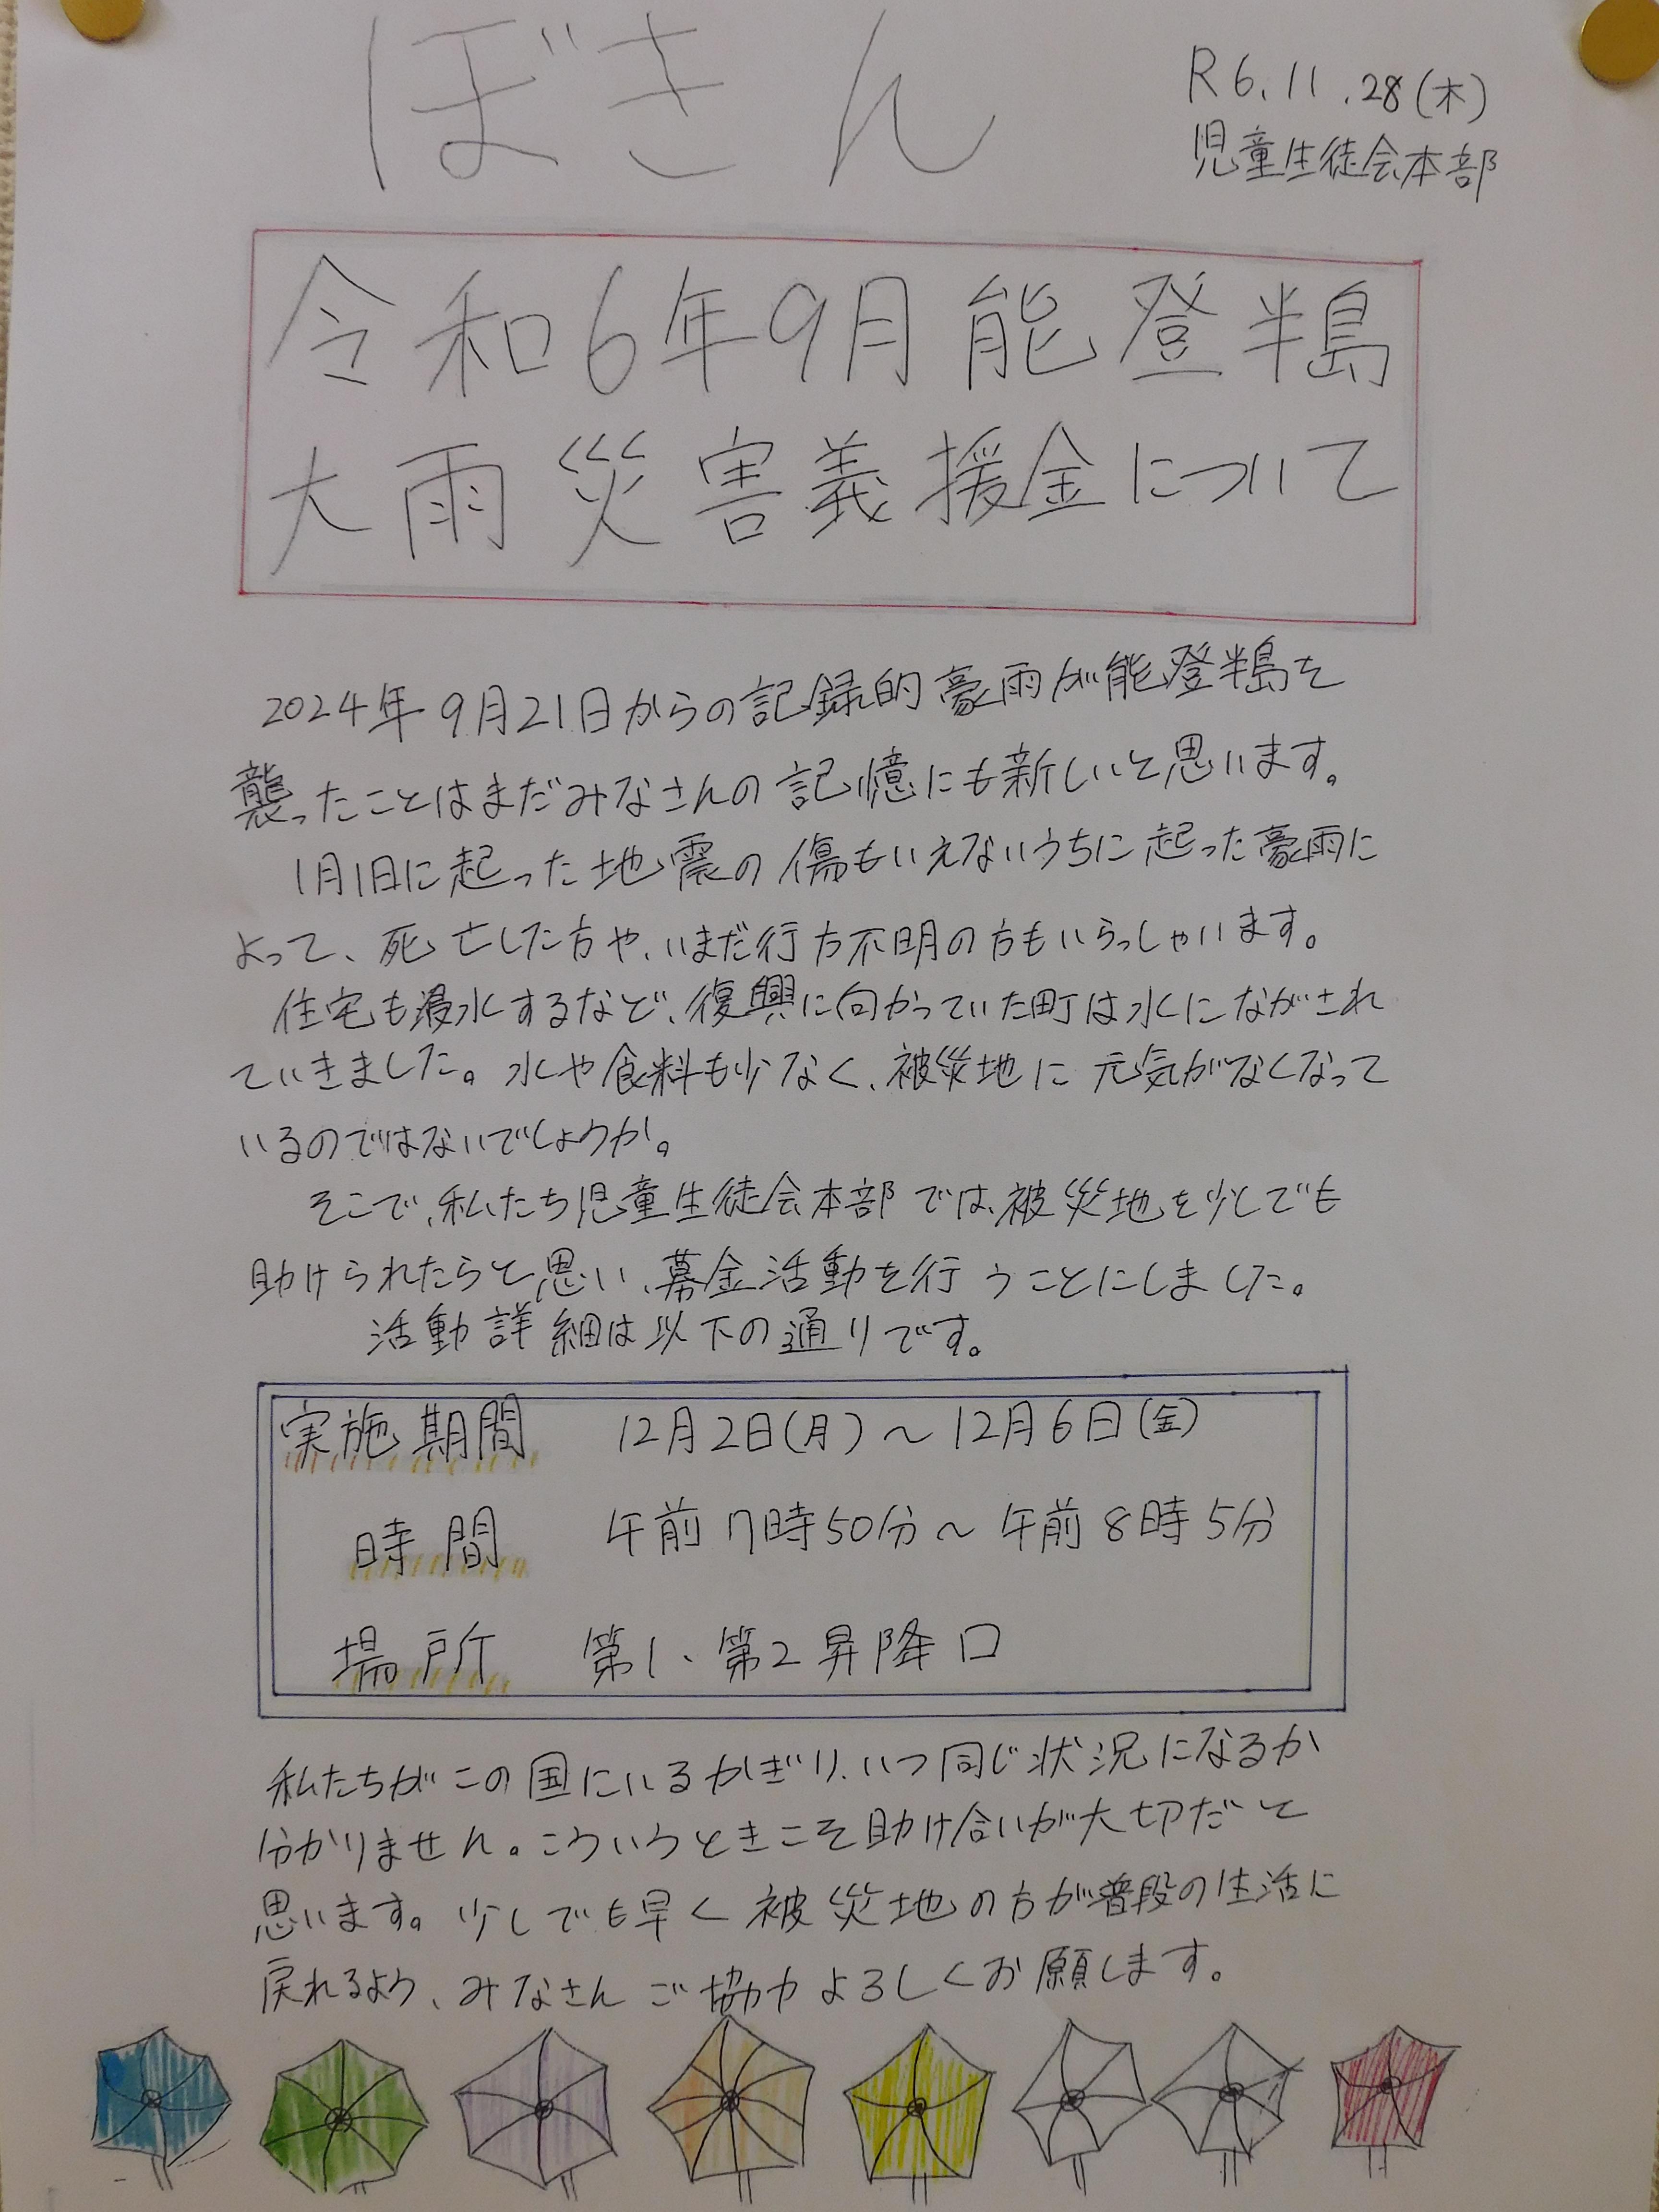 ぼきん
R6.11.28(木)
児童生徒会本部
令和6年9月能登半島
大雨災害義援金について
2024年9月21日からの記録的豪雨が能登半島を
襲ったことはまだみなさんの記憶にも新しいと思います。
1月1日に起った地震の傷もいえないうちに起った豪雨に
よって、死亡した方や、いまだ行方不明の方もいらっしゃいます。
住宅も浸水するなど、復興に向かっていた町は水にながされ
ていきました。水や食料も少なく、被災地に元気がなくなって
いるのではないでしょうか。
そこで、私たち児童生徒会本部では、被災地を少しでも
助けられたらと思い、募金活動を行うことにしました。
活動詳細は以下の通りです。
実施期間 12月2日(月)~12月6日(金)
時間 午前7時50分~午前8時5分
場所 第1、第2昇降口
私たちがこの国にいるかぎり、いつ同じ状況になるか
分かりません。こういうときこそ助け合いが大切だと
思います。少しでも早く被災地の方が普段の生活に
戻れるよう、みなさんご協力よろしくお願します。